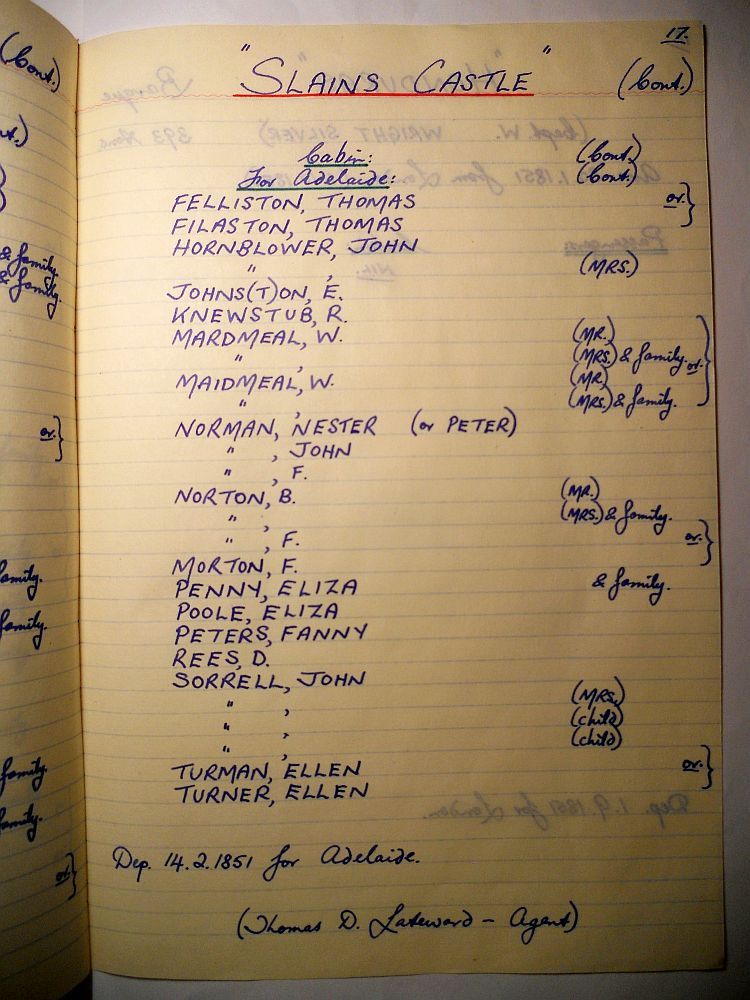 17.
"SLAINS CASTLE" (Cont.)
Cabin: (Cont.)
For Adelaide: (Cont.)
FELLISTON, THOMAS or }
FILASTON, THOMAS
HORNBLOWER, JOHN
" , (MRS.)
JOHNS(T)ON, E.
KNEWSTUB, R.
MARDMEAL, W. (MR.)
" , (MRS.) & family. or }
MAIDMEAL, W. (MR.)
" , (MRS.) & family.
NORMAN, NESTER (or PETER)
" , JOHN
" , F.
NORTON, B. (MR.)
" , (MRS.) & family.
" , F. or }
MORTON, F.
PENNY, ELIZA & family.
POOLE, ELIZA
PETERS, FANNY
REES, D.
SORRELL, JOHN
" , (MRS.)
" , (child)
" , (child)
TURMAN, ELLEN or }
TURNER, ELLEN
Dep. 14.2.1851 for Adelaide.
(Thomas D. Lateward - Agent)
(Cont.)
& family.
& family.
or }
family.
family.
family.
family.
or }